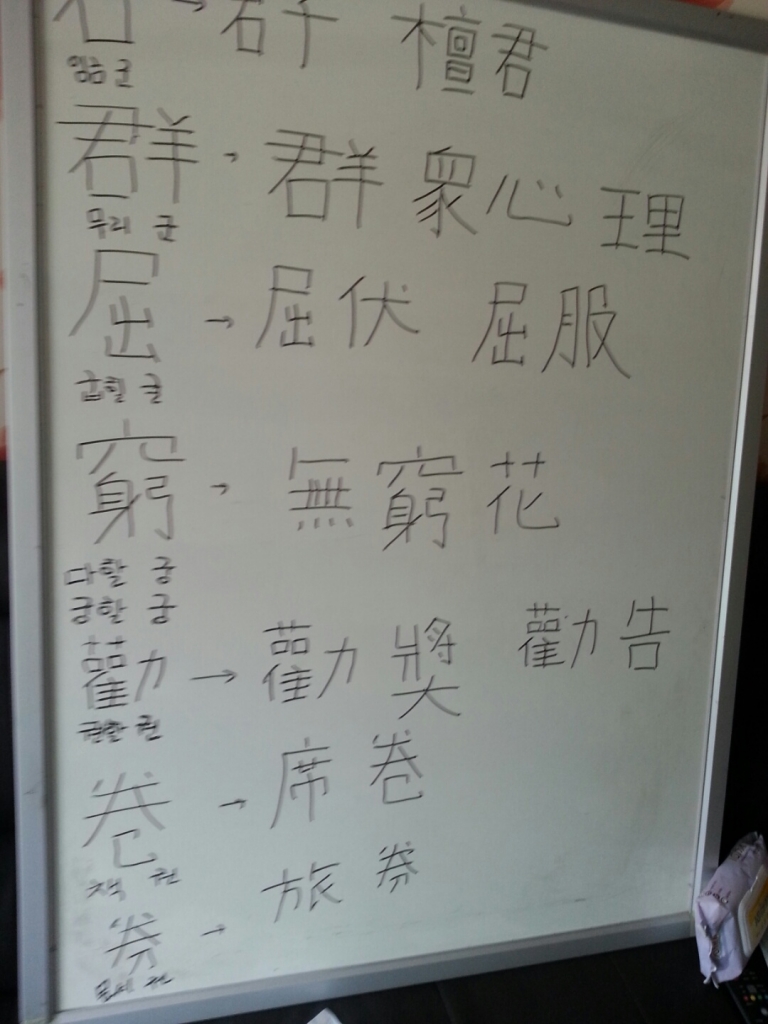 君 → 君子 檀君
임금 군
群 → 群衆心理
무리 군
屈 → 屈伏 屈服
굽힐 굴
窮 → 無窮花
다할 궁
궁할 궁
勸 → 勸奬 勸告
권할 권
卷 → 席卷
책 권
券 → 旅券
권